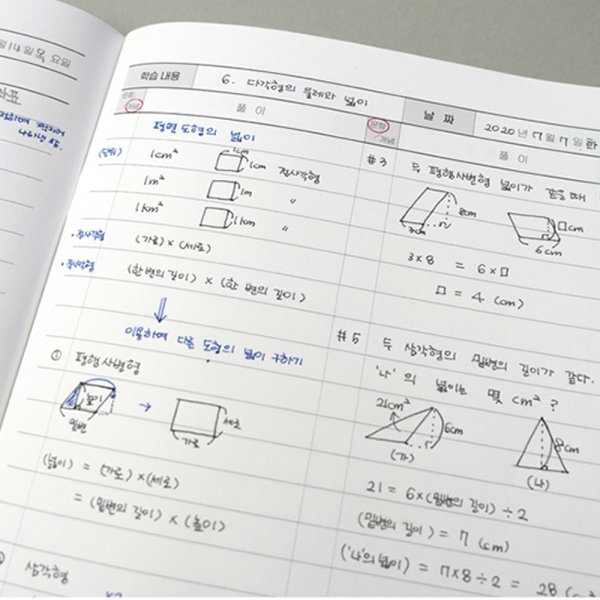 14일 목요일
학습 내용
6. 다각형의 둘레와 넓이
날 짜
2020년 7월 7일 화
유형
개념
풀 이
유형
개념
풀 이
평면 도형의 넓이
(단위) 1cm² 1cm 1cm 정사각형
1m² 1m 〃
1km² 1km 〃
· 직사각형 (가로) × (세로)
· 정사각형 (한 변의 길이) × (한 변의 길이)
이용하여 다른 도형의 넓이 구하기
① 평행사변형
높이
밑변
→
세로
가로
(넓이) = (가로) × (세로)
= (밑변의 길이) × (높이)
삼각형
#3 두 평행사변형 넓이가 같을 때
8cm
3cm
□cm
6cm
3×8 = 6×□
□ = 4 (cm)
#5 두 삼각형의 밑변의 길이가 같다.
'나'의 넓이는 몇 cm²?
21cm²
6cm
(가)
8cm
(나)
21 = 6×(밑변의 길이) ÷2
(밑변의 길이) = 7 (cm)
('나'의 넓이) = 7×8÷2 = 28